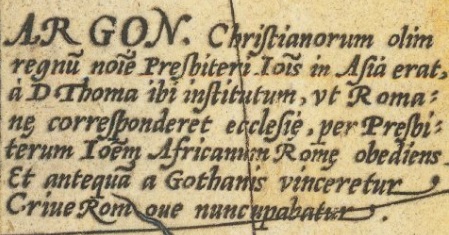 ARGON. Christianorum olim
regnū noīe Presbiteri Ioīs in Asia erat,
à D Thoma ibi institutum, vt Roma=
nę corresponderet ecclesię, per Presbi=
terum Ioēm Africanum Romę obediens
Et antequā a Gothanis vinceretur
Criue Rom oue nuncupabatur.